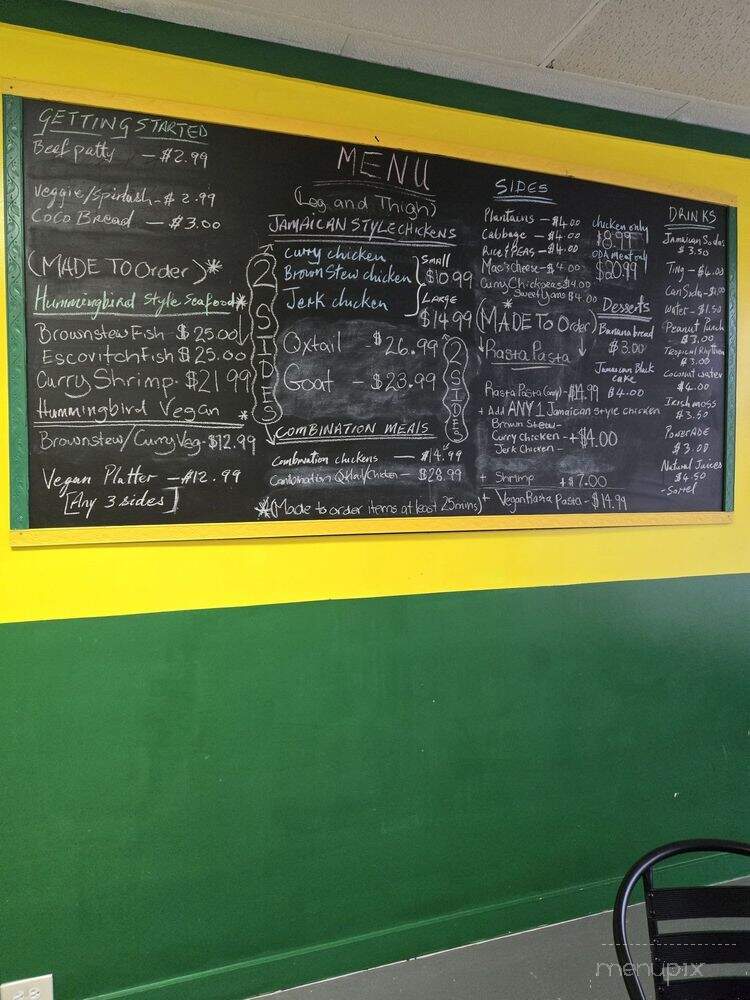 GETTING STARTED
Beef patty — $2.99
Veggie/spinash - $2.99
Coco Bread — $3.00
(MADE To Order) *
Hummingbird Style Seafood *
Brownstew Fish - $25.00
Escovitch Fish $25.00
Curry Shrimp - $21.99
Hummingbird Vegan *
Brownstew/Curry Veg - $12.99
Vegan Platter — $12.99
[Any 3 sides]
2 SIDES
MENU
(Leg and Thigh)
JAMAICAN STYLE CHICKENS
Curry chicken
Brown Stew chicken
Jerk chicken
Small
$10.99
LARGE
$14.99
Oxtail $26.99
Goat — $23.99
2 SIDES
COMBINATION MEALS
Combination chickens — $14.99
Combination Oxtail/Chicken — $28.99
*(Made to order items at least 25mins)
SIDES
Plantains — $4.00
Cabbage — $4.00
Rice & PEAS — $4.00
Mac & cheese — $4.00
Curry Chickpeas $4.00
Sweet Yams $4.00
chicken only
$8.99
$20.99
*
(MADE TO Order)
Rasta Pasta
Rasta Pasta $14.99
+ Add ANY 1 Jamaican style chicken
Brown Stew -
Curry Chicken - + $4.00
Jerk Chicken -
+ Shrimp + $7.00
+ Vegan Rasta Pasta - $14.99
Desserts
Banana bread
$3.00
Jamaican Black
cake
$4.00
DRINKS
Jamaican Sodas
$3.50
Ting - $4.00
Can Soda - $1.00
Water - $1.50
Peanut Punch
$3.00
Tropical Rhythm
$3.00
Coconut water
$4.00
Irish moss
$3.50
POWERADE
$3.00
Natural Juices
$4.50
- Sorrel
menupix